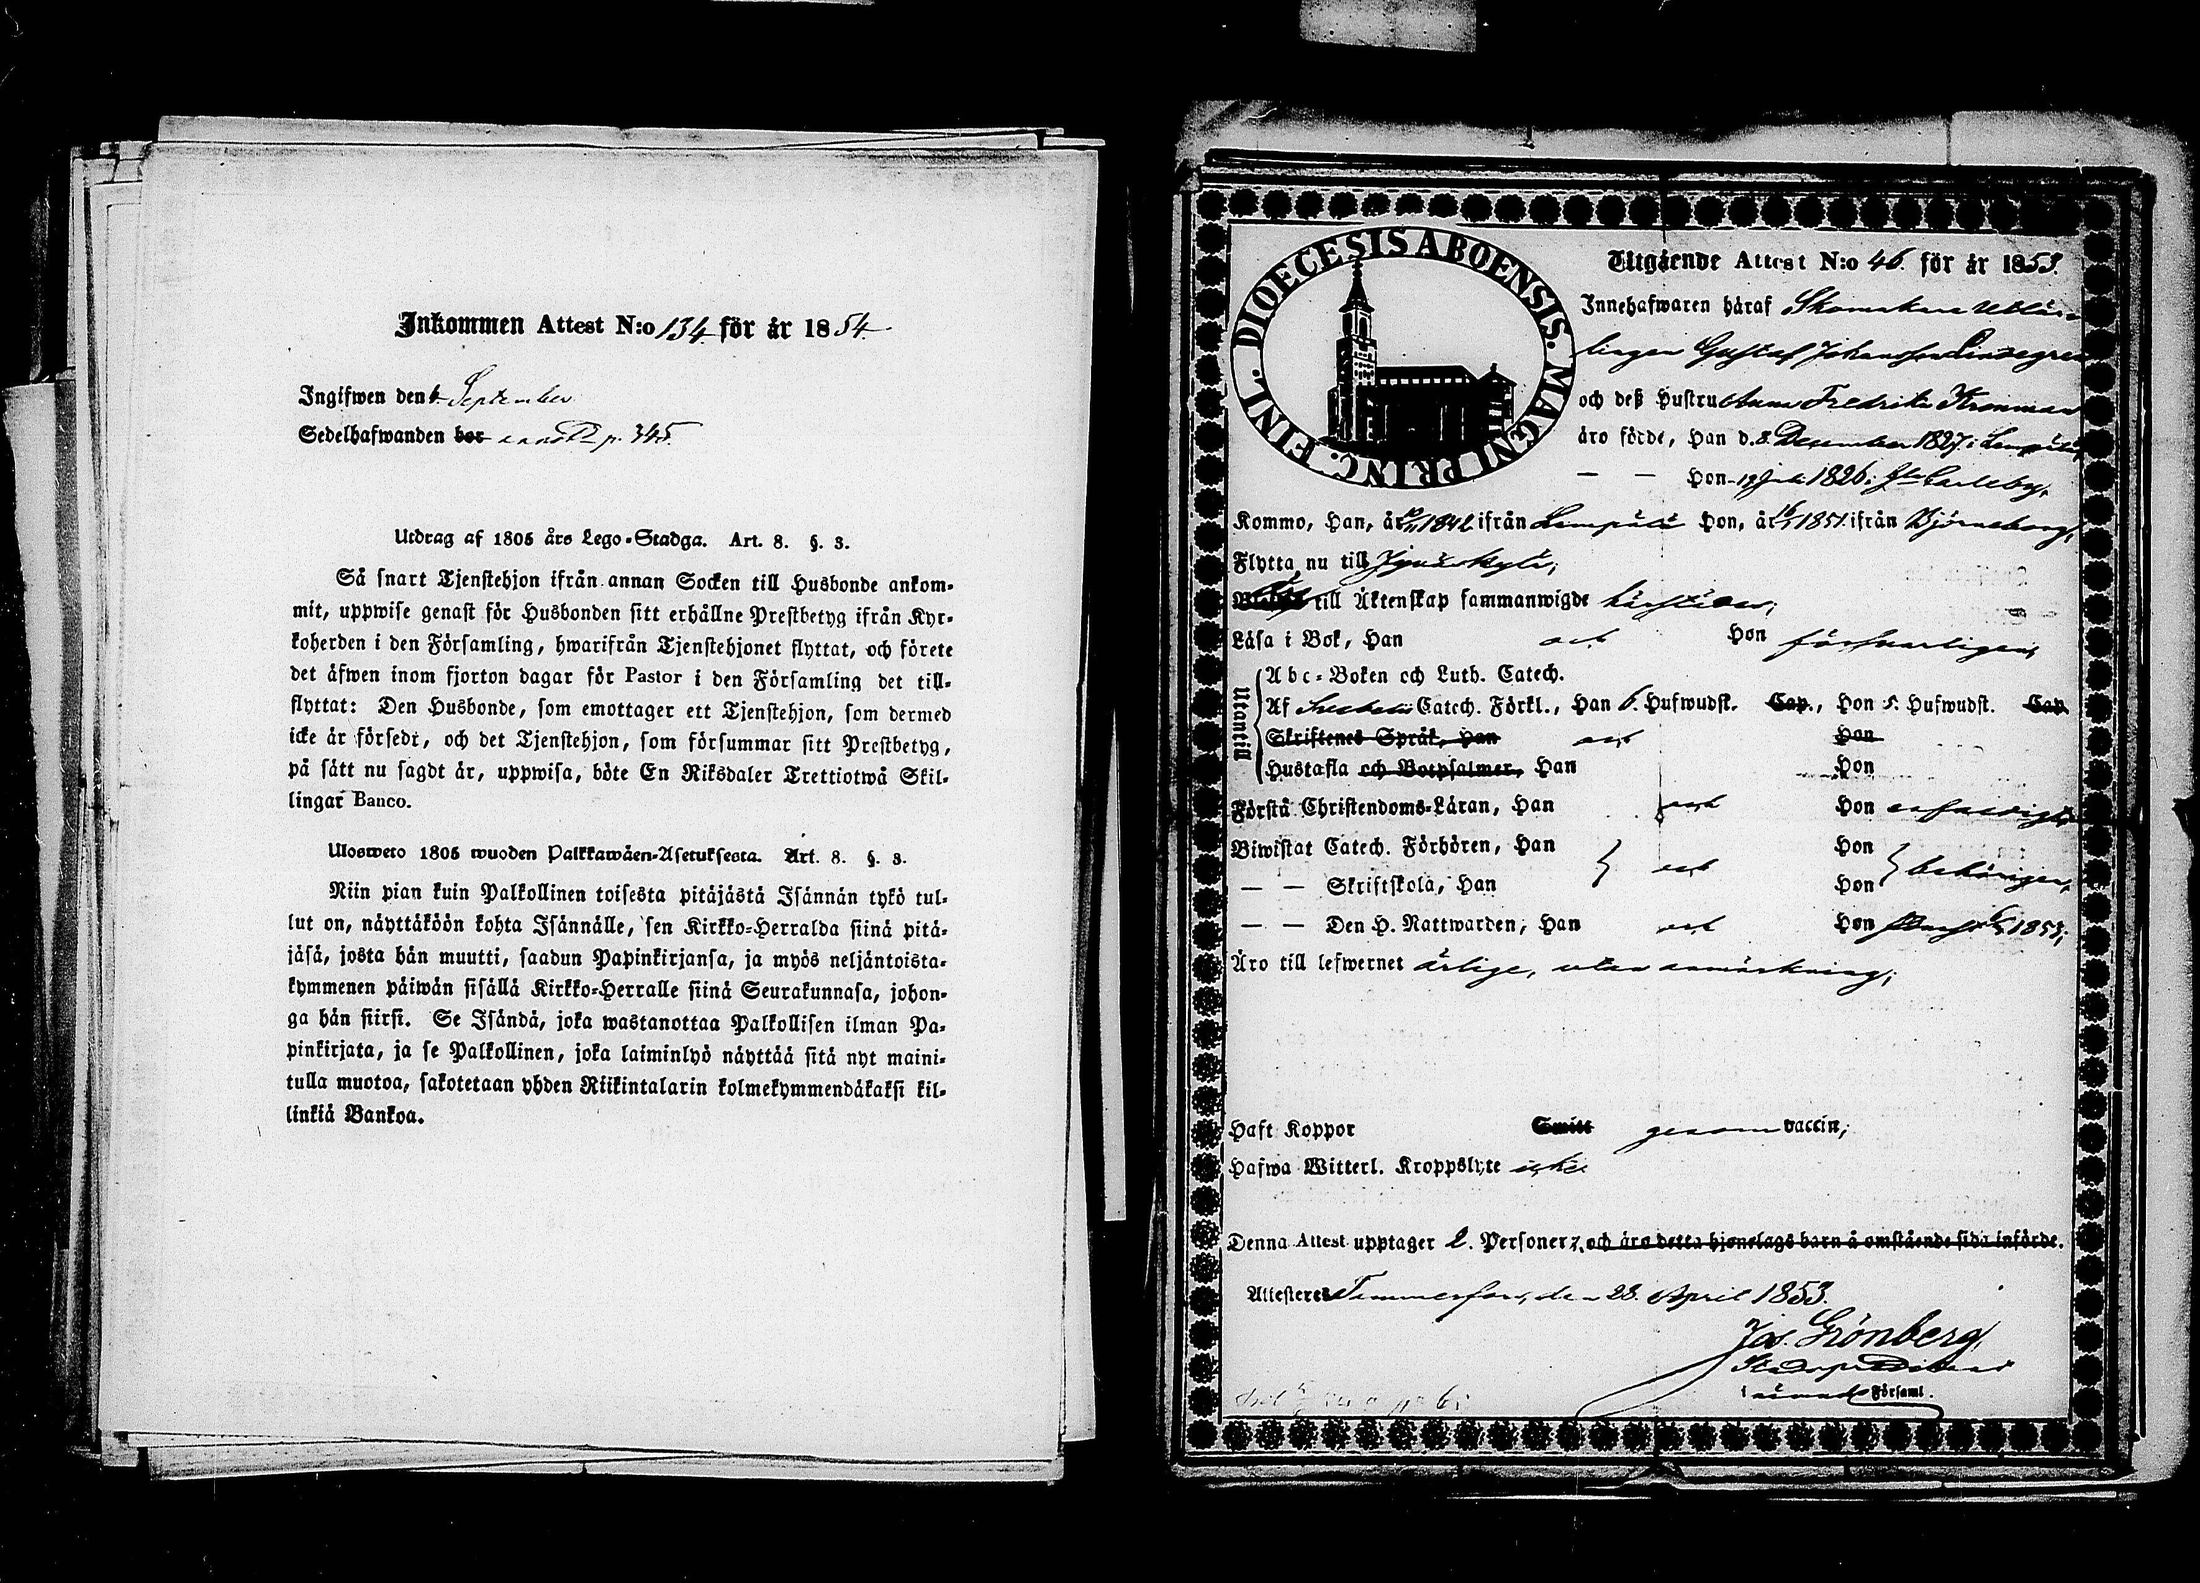 Inkommen Attest N:o 134. för år 1854.
Ingifwen den 6 September
Sedelhafwanden bor p. 345.
Utdrag af 1805 års Lego-Stadga. Art. 8. §. 3.
Så snart Tjenstehjon ifrån annan Socken till Husbonde ankom-
mit, uppwise genast för Husbonden sitt erhållne Prestbetyg ifrån Kyr-
koherden i den Församling, hwarifrån Tjenstehjonet flyttat, och förete
det äfwen inom fjorton dagar för Pastor i den Församling det till-
flyttat: Den Husbonde, som emottager ett Tjenstehjon, som dermed
icke är försedt, och det Tjenstehjon, som försummar sitt Prestbetyg,
på sätt nu sagdt är, uppwisa, böte En Riksdaler Trettiotwå Skil-
lingar Banco.
Ulosweto 1805 wuoden Palkkawäen-Asetuksesta. Art. 8. §. 3.
Niin pian kuin Palkollinen toisesta pitäjästä Isännän tykö tul-
lut on, näyttäköön kohta Isännälle, sen Kirkko-Herralda siinä pitä-
jäsä, josta hän muutti, saadun Papinkirjansa, ja myös neljäntoista-
kymmenen päiwän sisällä Kirkko-Herralle siinä Seurakunnasa, johon-
ga hän siirsi. Se Isändä, joka wastanottaa Palkollisen ilman Pa-
pinkirjata, ja se Palkollinen, joka laiminlyö näyttää sitä nyt maini-
tulla muotoa, sakotetaan yhden Riikintalarin kolmekymmendäkaksi kil-
linkiä Bankoa.
DIOECESIS ABOENSIS. MAGNI PRINC. FINL.
Utgående Attest N:o 46. för år 1853.
Innehafwaren häraf Skomakare utlär-
lingen Gustaf Johansson Lindegren
och deß Hustru Anna Fredrika Kronman
äro födde, Han d. 8. December 1827. i Lempälä,
— — Hon - 19 Juli 1826 i Gla Carleby,
Kommo, Han, år 1842 ifrån Lempälä Hon, år 1851. ifrån Björneborg,
Flytta nu till Jyväskylä,
till Äktenskap sammanwigde härstädes;
Läsa i Bok, Han och Hon försvarligen,
Utantill
Abc-Boken och Luth. Catech.
Af Svebelii Catech. Förkl., Han 6. Hufwudst. Cap., Hon 5. Hufwudst. Cap.
Skriftenes Språk, Han och Hon
Hustafla och Botpsalmer, Han Hon
Förstå Christendoms-Läran, Han och Hon enfaldigt,
Biwistat Catech. Förhören, Han och Hon behörigen,
— — Skriftskola, Han Hon
— — Den H. Nattwarden, Han och Hon 1853;
Äro till lefwernet ärlige, utan anmärkning;
Haft Koppor Smitt genom vaccin;
Hafwa Witterl. Kroppslyte icke
Denna Attest upptager 2. Personer, och äro detta hjonelags barn å omstående sida införde.
Attesteres Tammerfors, den 28. April 1853.
Jos. Grönberg,
Stadspredikant
i nämnde Församl.